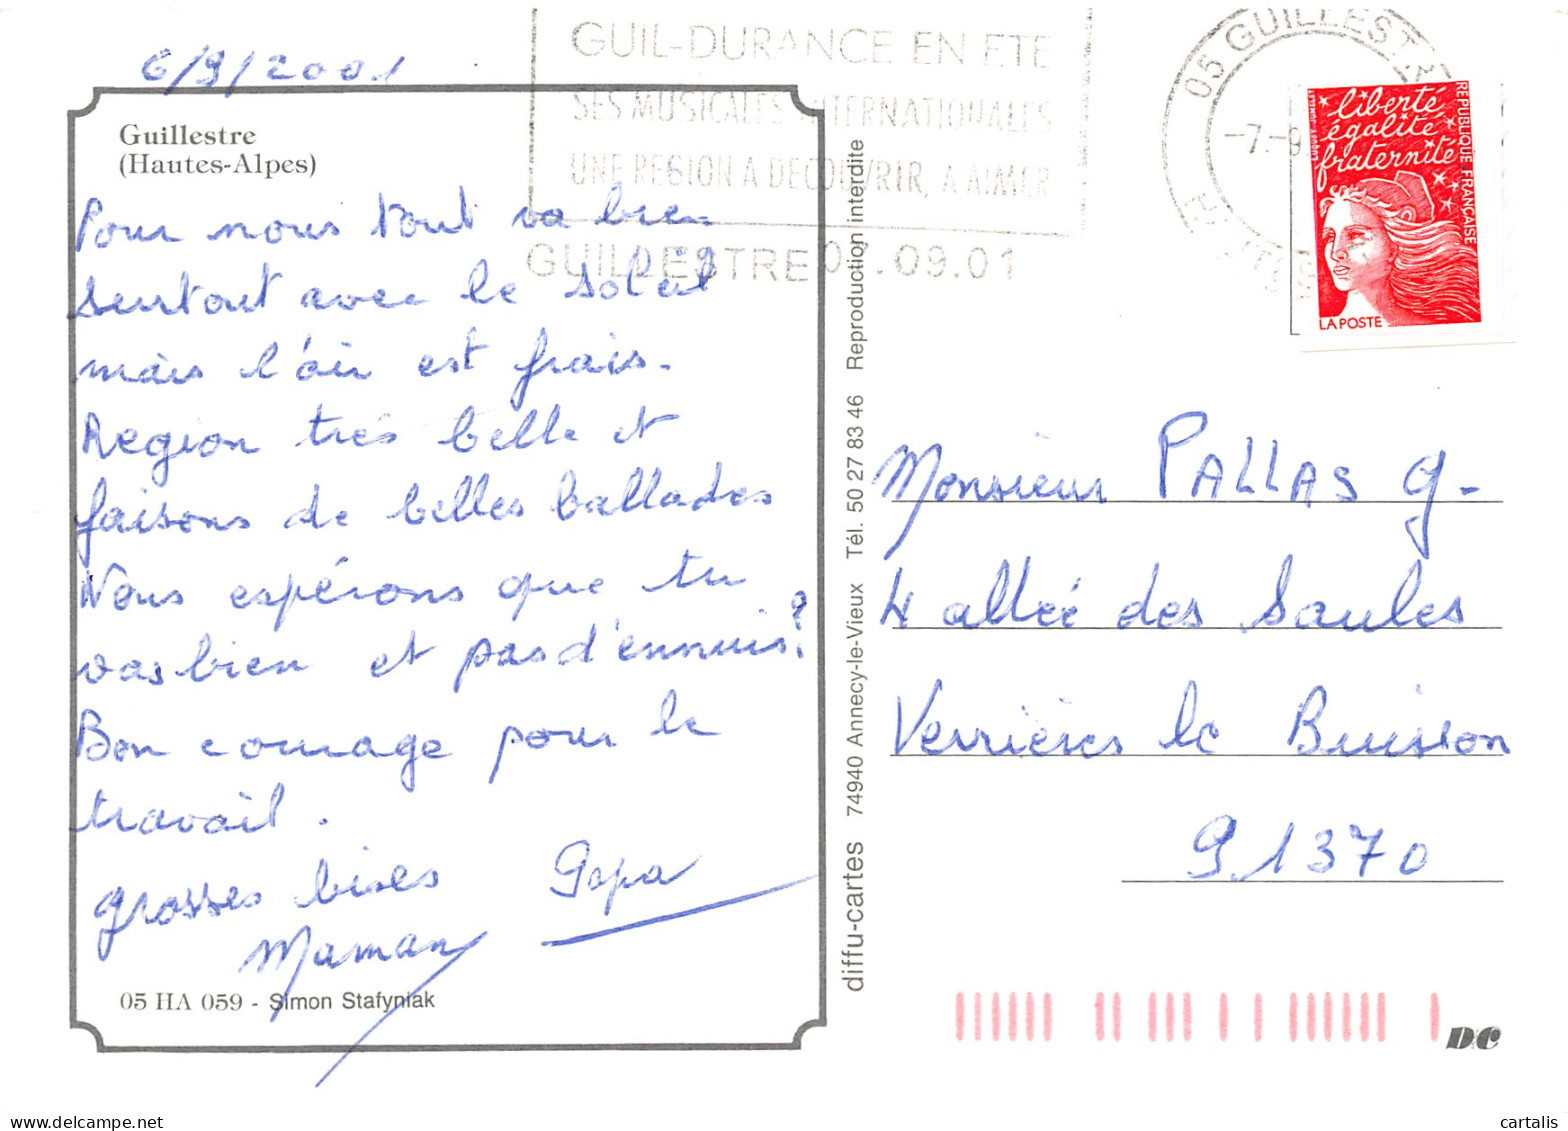 6/9/2001
Guillestre
(Hautes-Alpes)
Pour nous tout va bien
surtout avec le soleil
mais l'air est frais.
Region très belle et
faisons de belles ballades
Nous espérons que tu
vas bien et pas d'ennuis?
Bon courage pour le
travail.
grosses bises Papa
Maman
05 HA 059 - Simon Stafyniak
GUIL-DURANCE EN ETE
SES MUSICALES INTERNATIONALES
UNE REGION A DECOUVRIR, A AIMER
GUILLESTRE 07.09.01
diffu-cartes 74940 Annecy-le-Vieux Tél. 50 27 83 46 Reproduction interdite
05 GUILLESTRE
-7.-9
liberté
égalité
fraternité
REPUBLIQUE FRANÇAISE
LA POSTE
Monsieur PALLAS G-
4 allée des Saules
Verrières le Buisson
91370
DC
cartalis